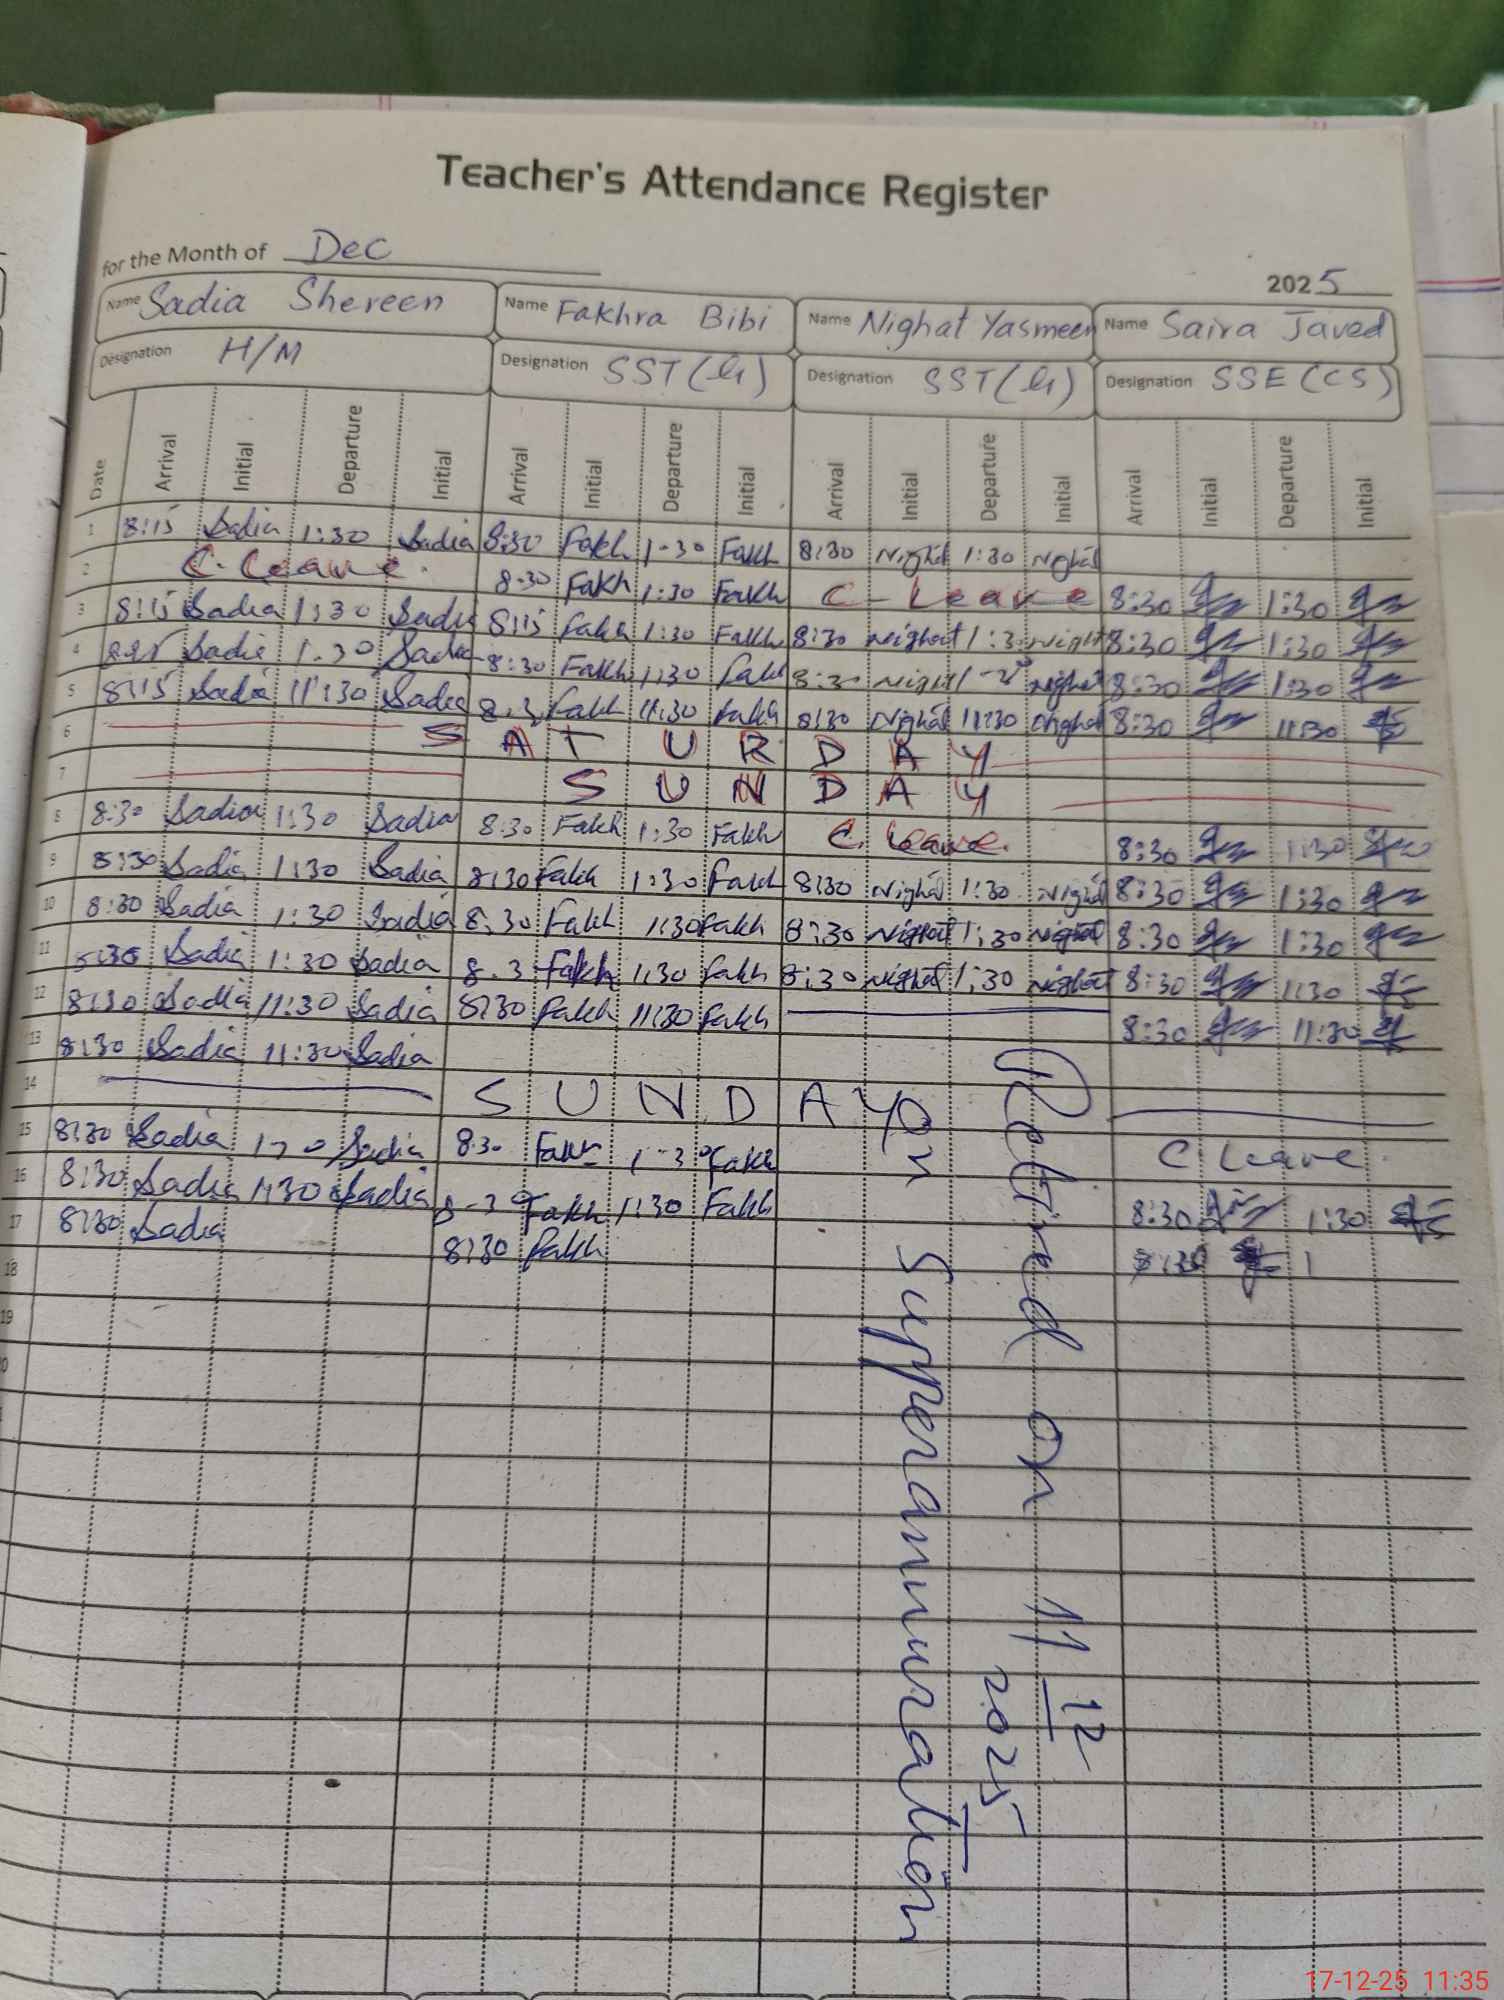 Teacher's Attendance Register
for the Month of Dec
2025
Name Sadia Shereen Name Fakhra Bibi Name Nighat Yasmeen Name Saira Javed
Designation H/M Designation SST(G) Designation SST(G) Designation SSE (CS)
Date Arrival Initial Departure Initial Arrival Initial Departure Initial Arrival Initial Departure Initial Arrival Initial Departure Initial
1 8:15 Sadia 1:30 Sadia 8:30 Fakh 1-30 Fakh 8:30 Nighat 1:30 Nighat
2 C. Leave. 8:30 Fakh 1:30 Fakh C- Leave 8:30 1:30
3 8:15 Sadia 1:30 Sadia 8:15 Fakh 1:30 Fakh 8:30 Nighat 1:3 Night 8:30 1:30
4 Sadia 1.30 Sadia 8:30 Fakh 1:30 Fakh 8:30 Night Nighat 8:30 1:30
5 8:15 Sadia 11:30 Sadia 8:3 Fakh 11:30 Fakh 8:30 Nighat 11:30 Nighat 8:30 11:30
6 SATURDAY
7 SUNDAY
8 8:30 Sadia 1:30 Sadia 8:30 Fakh 1:30 Fakh C. Leave. 8:30 1:30
9 8:30 Sadia 1:30 Sadia 8:30 Fakh 1:30 Fakh 8:30 Nighat 1:30 Nighat 8:30 1:30
10 8:30 Sadia 1:30 Sadia 8:30 Fakh 1:30 Fakh 8:30 Nighat 1:30 Nighat 8:30 1:30
11 Sadia 1:30 Sadia 8.3 Fakh 1:30 Fakh 8:30 Nighat 1:30 Nighat 8:30 1:30
12 8:30 Sadia 11:30 Sadia 8:30 Fakh 11:30 Fakh 8:30 11:30
13 8:30 Sadia 11:30 Sadia
14 SUNDAY
15 8:30 Sadia Sadia 8:30 Fakh 1-3 Fakh C Leave.
16 8:30 Sadia 1:30 Sadia 8-3 Fakh 1:30 Fakh 8:30 1:30
17 8:30 Sadia 8:30 Fakh 8:30
18
19
Retired on 11 12 2025
on Superannuration
17-12-25 11:35